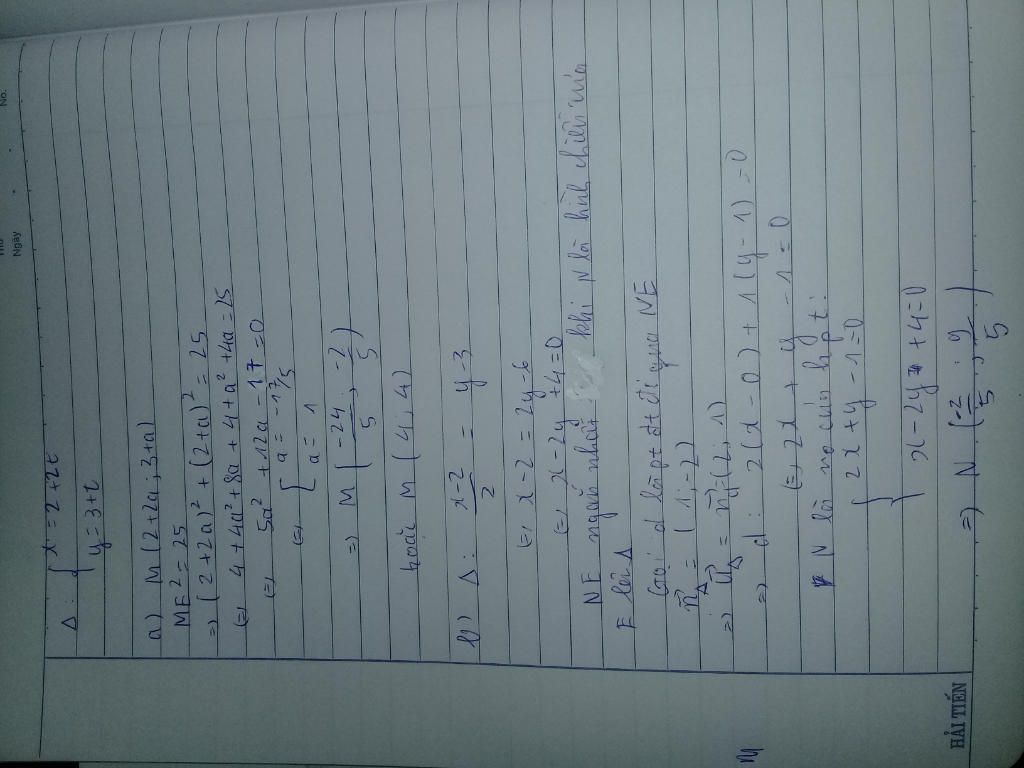 No.
Thứ
Ngày
Δ: { x = 2+2t
y = 3+t
a) M (2+2a; 3+a)
ME² = 25
=> (2+2a)² + (2+a)² = 25
(=) 4+4a²+8a+4+a²+4a=25
(=) 5a² +12a -17=0
(=) [ a = -17/5
a = 1
=> M ( -24/5 ; -2/5 )
hoặc M (4; 4)
b) Δ: (x-2)/2 = y-3
(=) x-2 = 2y-6
(=) x-2y+4=0
NE ngắn nhất khi N là hình chiếu của
E lên Δ
Gọi d là pt đt đi qua NE
n⃗Δ = (1; -2)
=> u⃗Δ = n⃗d = (2; 1)
=> d: 2(x-0) + 1(y-1) = 0
(=) 2x + y -1 = 0
N là no của hpt:
{ 2x+y-1=0
x-2y+4=0
=> N ( -2/5 ; 9/5 )
HẢI TIẾN